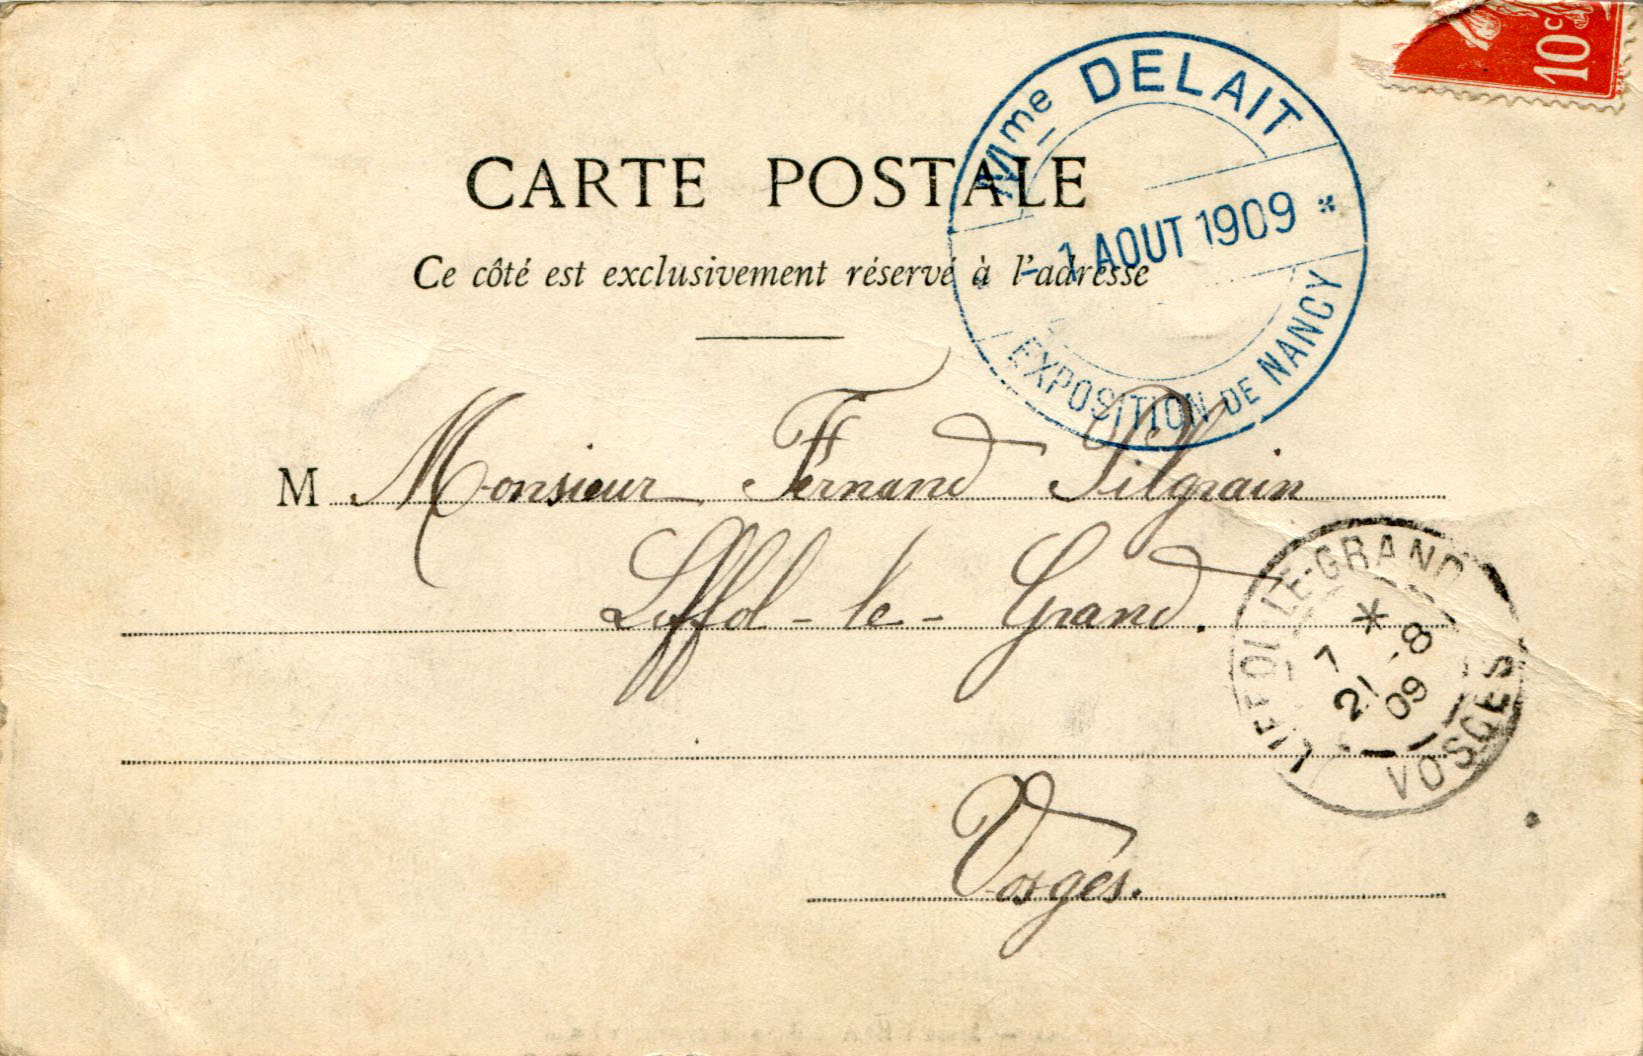 10c
Mme DELAIT
- 1 AOUT 1909 *
EXPOSITION DE NANCY
CARTE POSTALE
Ce côté est exclusivement réservé à l'adresse
M Monsieur Fernand Pilgrain
Liffol-le-Grand.
LIFFOL-LE-GRAND
*
7 21 -8 09
VOSGES
Vosges.